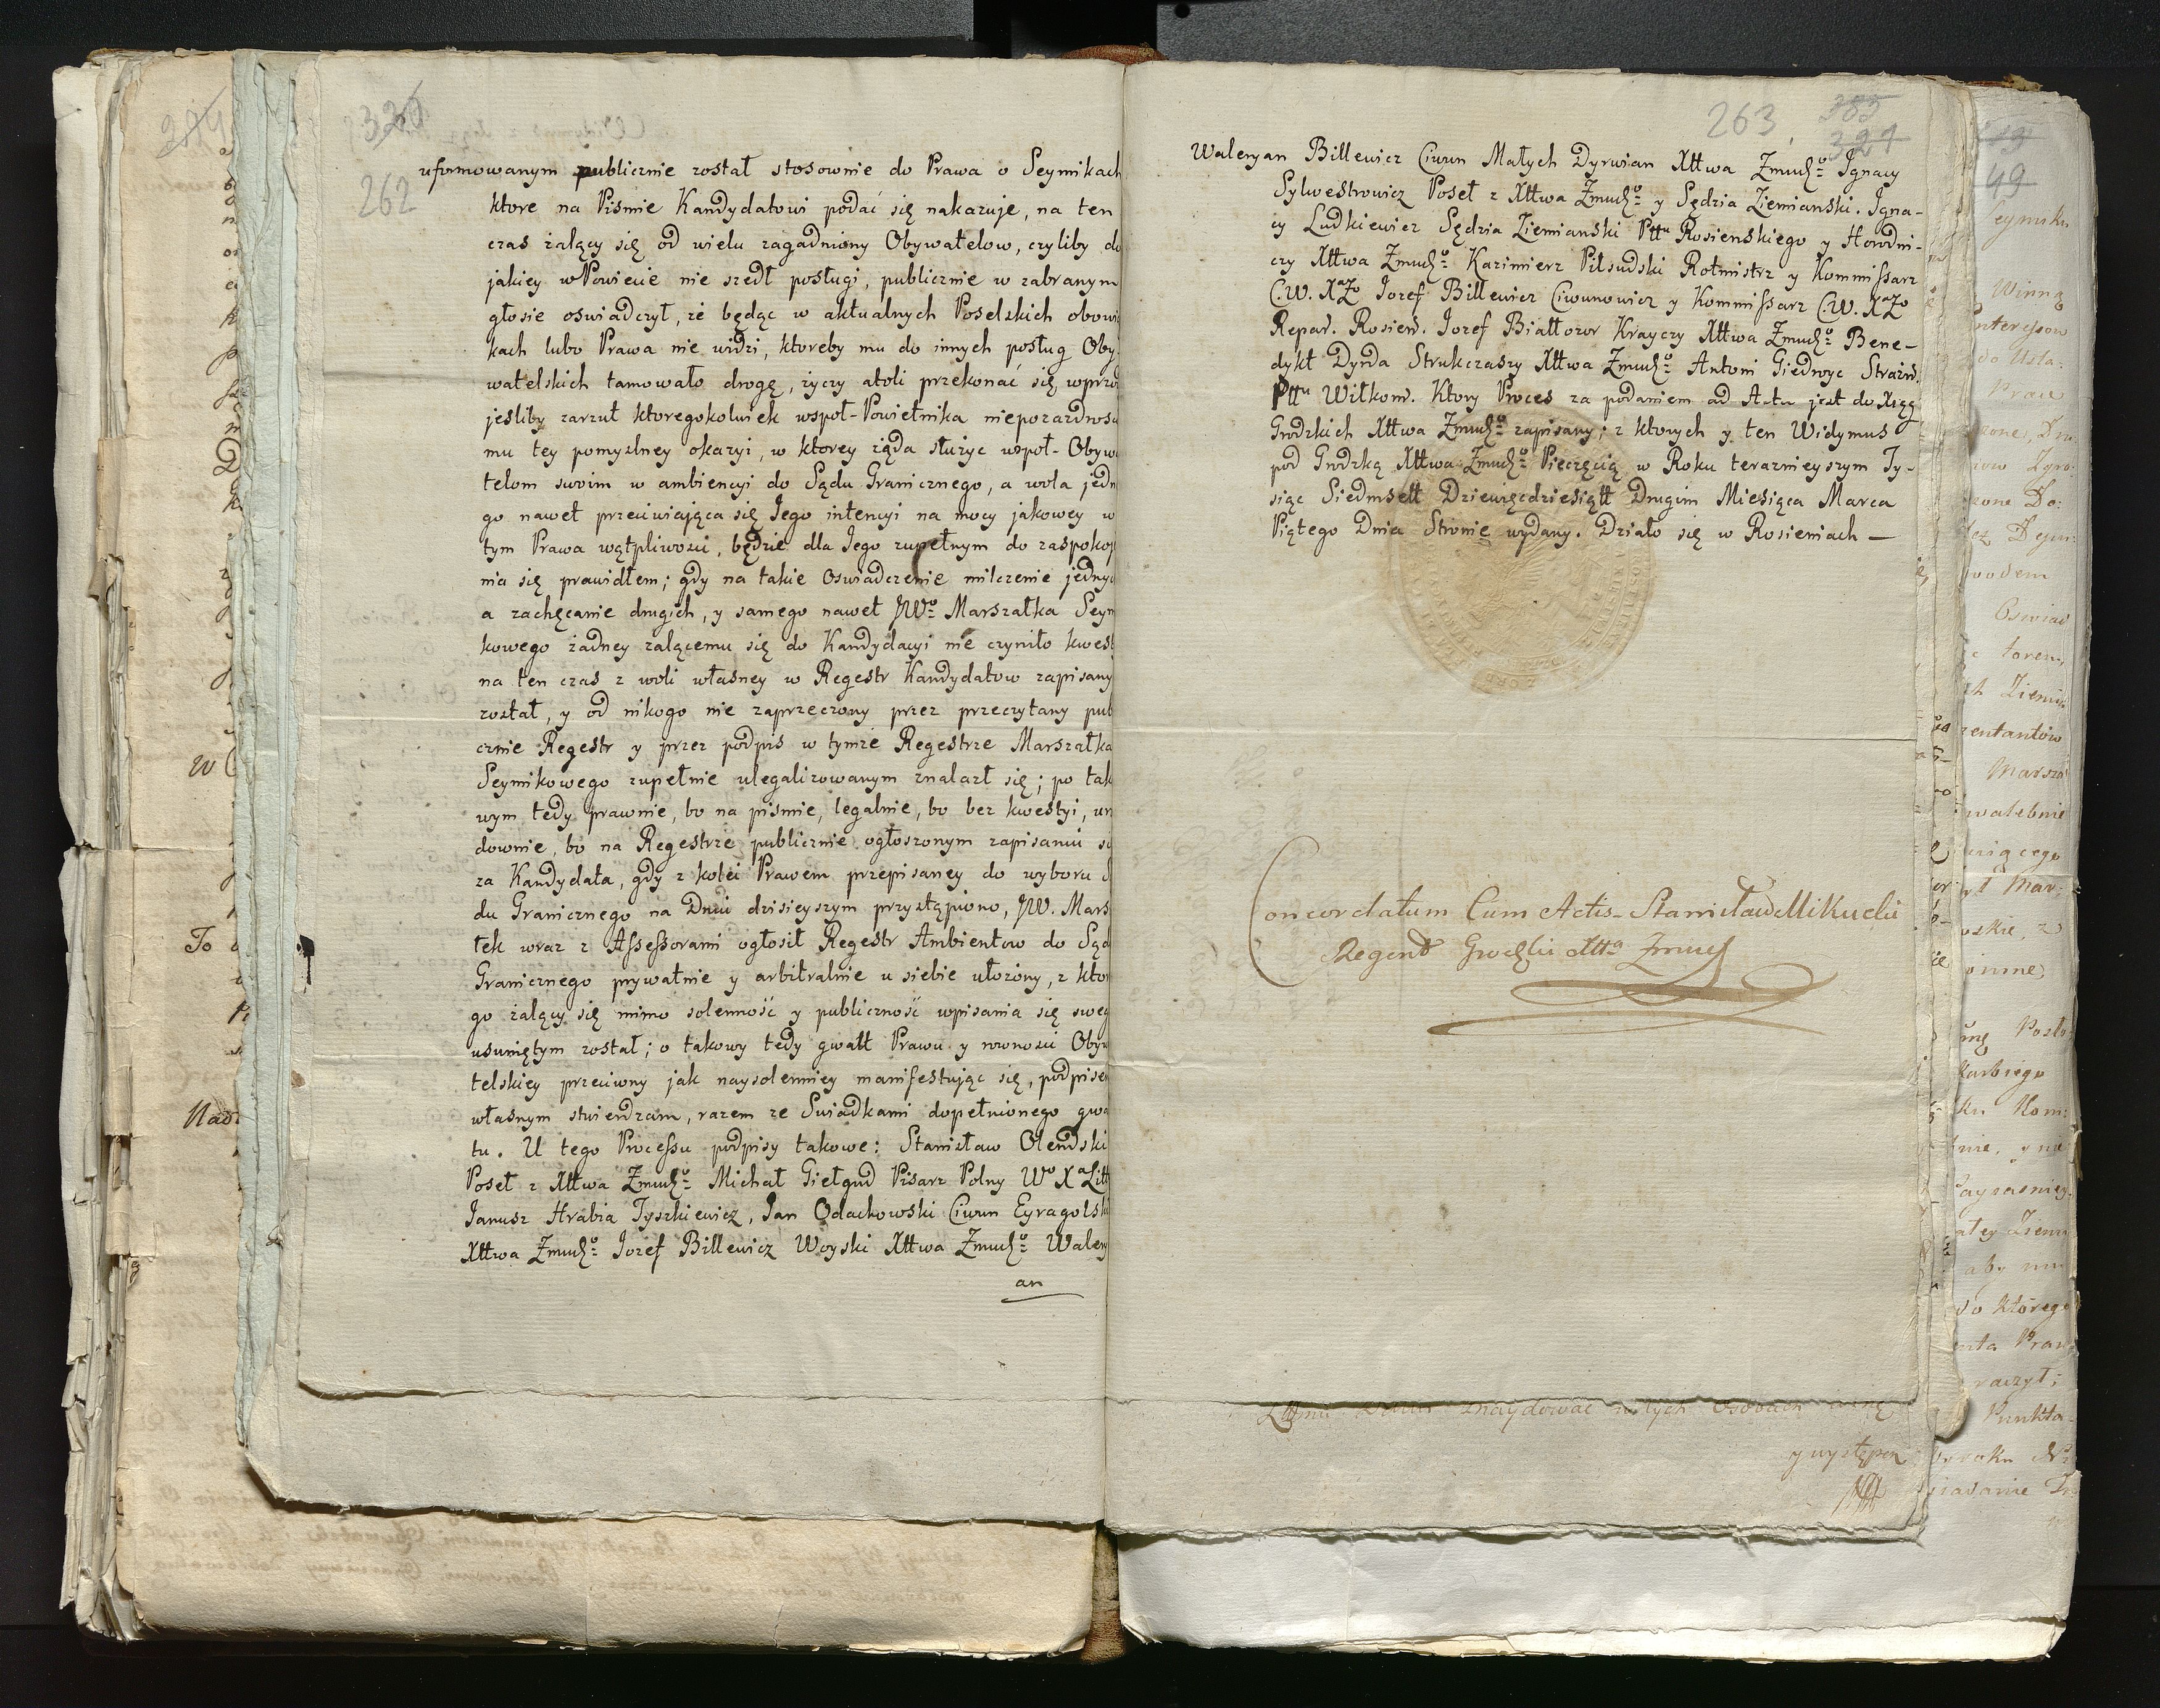 320
262
uformowanym publicznie został stosownie do Prawa o Seymikach
ktore na Pismie Kandydatowi podać się nakazuje, na ten
czas żalący się od wielu zagadniony Obywatelow, czyliby do
jakiey w Powiecie nie szedł posługi, publicznie w zabranym
głosie oswiadczył, że będąc w aktualnych Poselskich obowią
kach lubo Prawa nie widzi, ktoreby mu do innych posług Oby-
watelskich tamowało drogę, życzy atoli przekonać się wprzod
jesliby zarzut ktoregokolwiek wspoł-Powietnika niepozazdrosc
mu tey pomyslney okazyi, w ktorey żąda służyc wspoł-Obywa
telom swoim w ambiencyi do Sądu Granicznego, a wola jedn
go nawet przeciwiająca się Jego intencyi na mocy jakowey w
tym Prawa wątpliwosci, będzie dla Jego zupełnym do zaspokoj
nia się prawidłem; gdy na takie Oswiadczenie milczenie jednyc
a zachęcanie drugich, y samego nawet JWo Marszałka Seym
kowego żadney zalącemu się do Kandydacyi nie czyniło kwest
na ten czas z woli własney w Regestr Kandydatow zapisany
został, y od nikogo nie zaprzeczony przez przeczytany pub
cznie Regestr y przez podpis w tymże Regestrze Marszałka
Seymikowego zupełnie ulegalizowanym znalazł się; po tak
wym tedy prawnie, bo na pismie, legalnie, bo bez kwestyi, urz
downie, bo na Regestrze publicznie ogłoszonym zapisaniu si
za Kandydata, gdy z kolei Prawem przepisaney do wyboru S
du Granicznego na Dniu dzisieyszym przystąpiono, JW. Mars
łek wraz z Assessorami ogłosił Regestr Ambientow do Sąd
Granicznego prywatnie y arbitralnie u siebie ułożony, z ktor
go żalący się mimo solenność y publiczność wpisania się sweg
usuniętym został; o takowy tedy gwałt Prawu y rownosci Obyw
telskiey przeciwny jak naysolenniey manifestując się, podpisem
własnym stwierdzam, razem ze Swiadkami dopełnionego gwa
tu. U tego Processu podpisy takowe: Stanisław Olendski
Poseł z Xttwa Zmudzo Michał Giełgud Pisarz Polny Wo Xa Litt
Janusz Hrabia Tyszkiewicz, Jan Odachowski Ciwun Eyragolski
Xttwa Zmudzo Jozef Billewicz Woyski Xttwa Zmudzo Walery
an
263
385
321
Waleryan Billewicz Ciwun Małych Dyrwian Xttwa Zmudzo Ignacy
Sylwestrowicz Poseł z Xttwa Zmudzo y Sędzia Ziemianski. Igna-
cy Ludkiewicz Sędzia Ziemianski Pttu Rosienskiego y Horodni-
czy Xttwa Zmudzo Kazimierz Piłsudski Rotmistrz y Kommissarz
C.W. XaZo Jozef Billewicz Ciwunowicz y Kommissarz C.W. XaZo
Repar. Rosień. Jozef Białłozor Krayczy Xttwa Zmudzo Bene-
dykt Dyrda Strukczaszy Xttwa Zmudzo Antoni Giedroyc Strażn.
Pttu Wiłkom. Ktory Proces za podaniem ad Acta jest do Xiąg
Grodzkich Xttwa Zmudzo zapisany; z ktorych y ten Widymus
pod Grodzką Xttwa Zmudzo Pieczęcią w Roku terazniejszym Ty-
siąc Siedmsett Dziewięcdziesiątt Drugim Miesiąca Marca
Piątego Dnia Stronie wydany. Działo się w Rosieniach —
Concordatum Cum Actis Stanisław Mikucki
Regent Grodzki Xtta Zmudz
znaydować
y występca